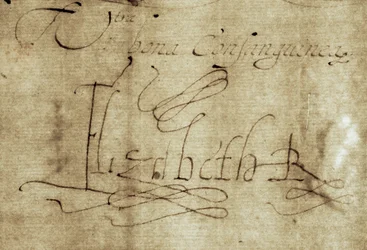 bona Consanguinea
Elizabeth R